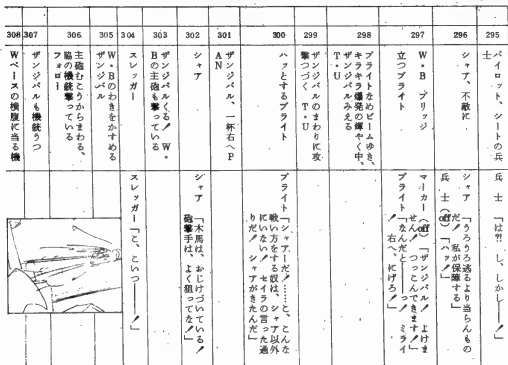 295
パイロット、シートの兵
士
兵 士 「は?! し、しかし――!」
296
シャア、不敵に
シャア 「うろうろ逃るより当らんもの
だ! 私が保障する」
兵 士 (off) 「ハッ!」
297
W・B ブリッジ
立つブライト
マーカー (off) 「ザンジバル! よけま
せん! つっこんできます!」
ブライト 「なんだと――っ! ミライ
! 右へ、にげろ!」
298
ブライトなめビームゆき、
キラキラ爆発の輝やく中、
ザンジバルみえる
T・U
299
ザンジバルのまわりに攻
撃つづく T・U
300
ハッとするブライト
ブライト 「シャアーだ!……こ、こんな
戦い方をする奴は、シャア以外
にいない! セイラの言った通
りだ! シャアがきたんだ」
301
ザンジバル、一杯右へP
AN
302
シャア
シャア 「木馬は、おじけづいている!
砲撃手は、よく狙ってな!」
303
ザンジバルくる! W・
Bの主砲も撃っている
304
スレッガー
スレッガー 「こ、こいつ――!」
305
W・Bのわきをかすめる
ザンジバル
306
主砲むこうからまわる、
脇の機銃撃っている
フォロー
307
ザンジバルも機銃うつ
308
Wベースの横腹に当る機